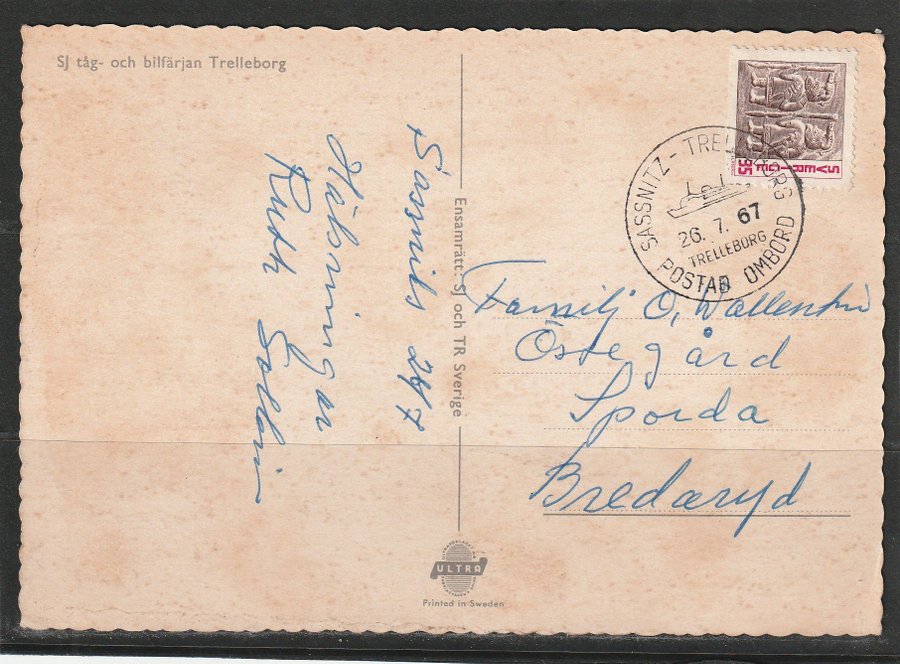 SJ tåg- och bilfärjan Trelleborg
Sassnits 26/7
Hälsningar
Ruth
Ensamrätt: SJ och TR Sverige
SVERIGE 35
SASSNITZ - TRELLEBORG
26. 7. 67
TRELLEBORG
POSTAD OMBORD
Familj O, Wallentin
Östegård
Sporda
Bredaryd
ULTRA
Printed in Sweden